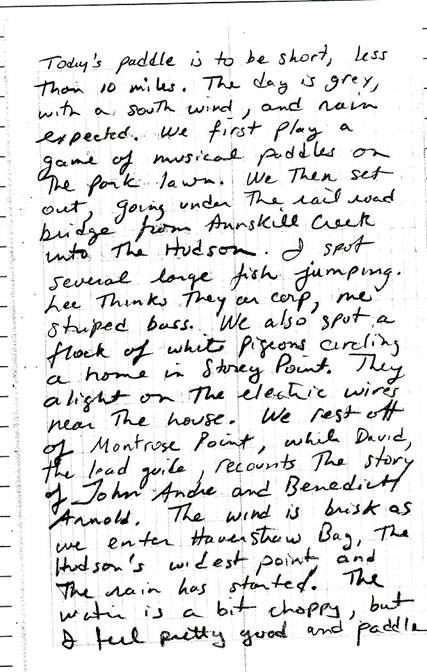 Today's paddle is to be short, less
than 10 miles. The day is grey,
with a south wind, and rain
expected. We first play a
game of musical paddles on
The park lawn. We Then set
out, going under The railroad
bridge from Annskill Creek
into The Hudson. I spot
several large fish jumping.
Lee Thinks They are carp, me
striped bass. We also spot a
flock of white pigeons circling
a home in Storey Point. They
alight on The electric wires
near The house. We rest off
of Montrose Point, while David,
The lead guide, recounts The story
of John Andre and Benedict
Arnold. The wind is brisk as
we enter Haverstraw Bay, The
Hudson's widest point, and
The rain has started. The
water is a bit choppy, but
I feel pretty good and paddle